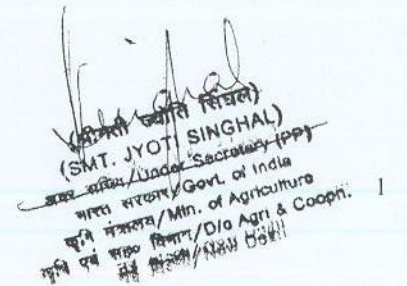 (श्रीमती ज्योति सिंघल)
(SMT. JYOTI SINGHAL)
अवर सचिव/Under Secretary (PP)
भारत सरकार/Govt. of India
कृषि मंत्रालय/Min. of Agriculture
कृषि एवं सह० विभाग/D/o Agri & Coopn.
नई दिल्ली/New Delhi
1